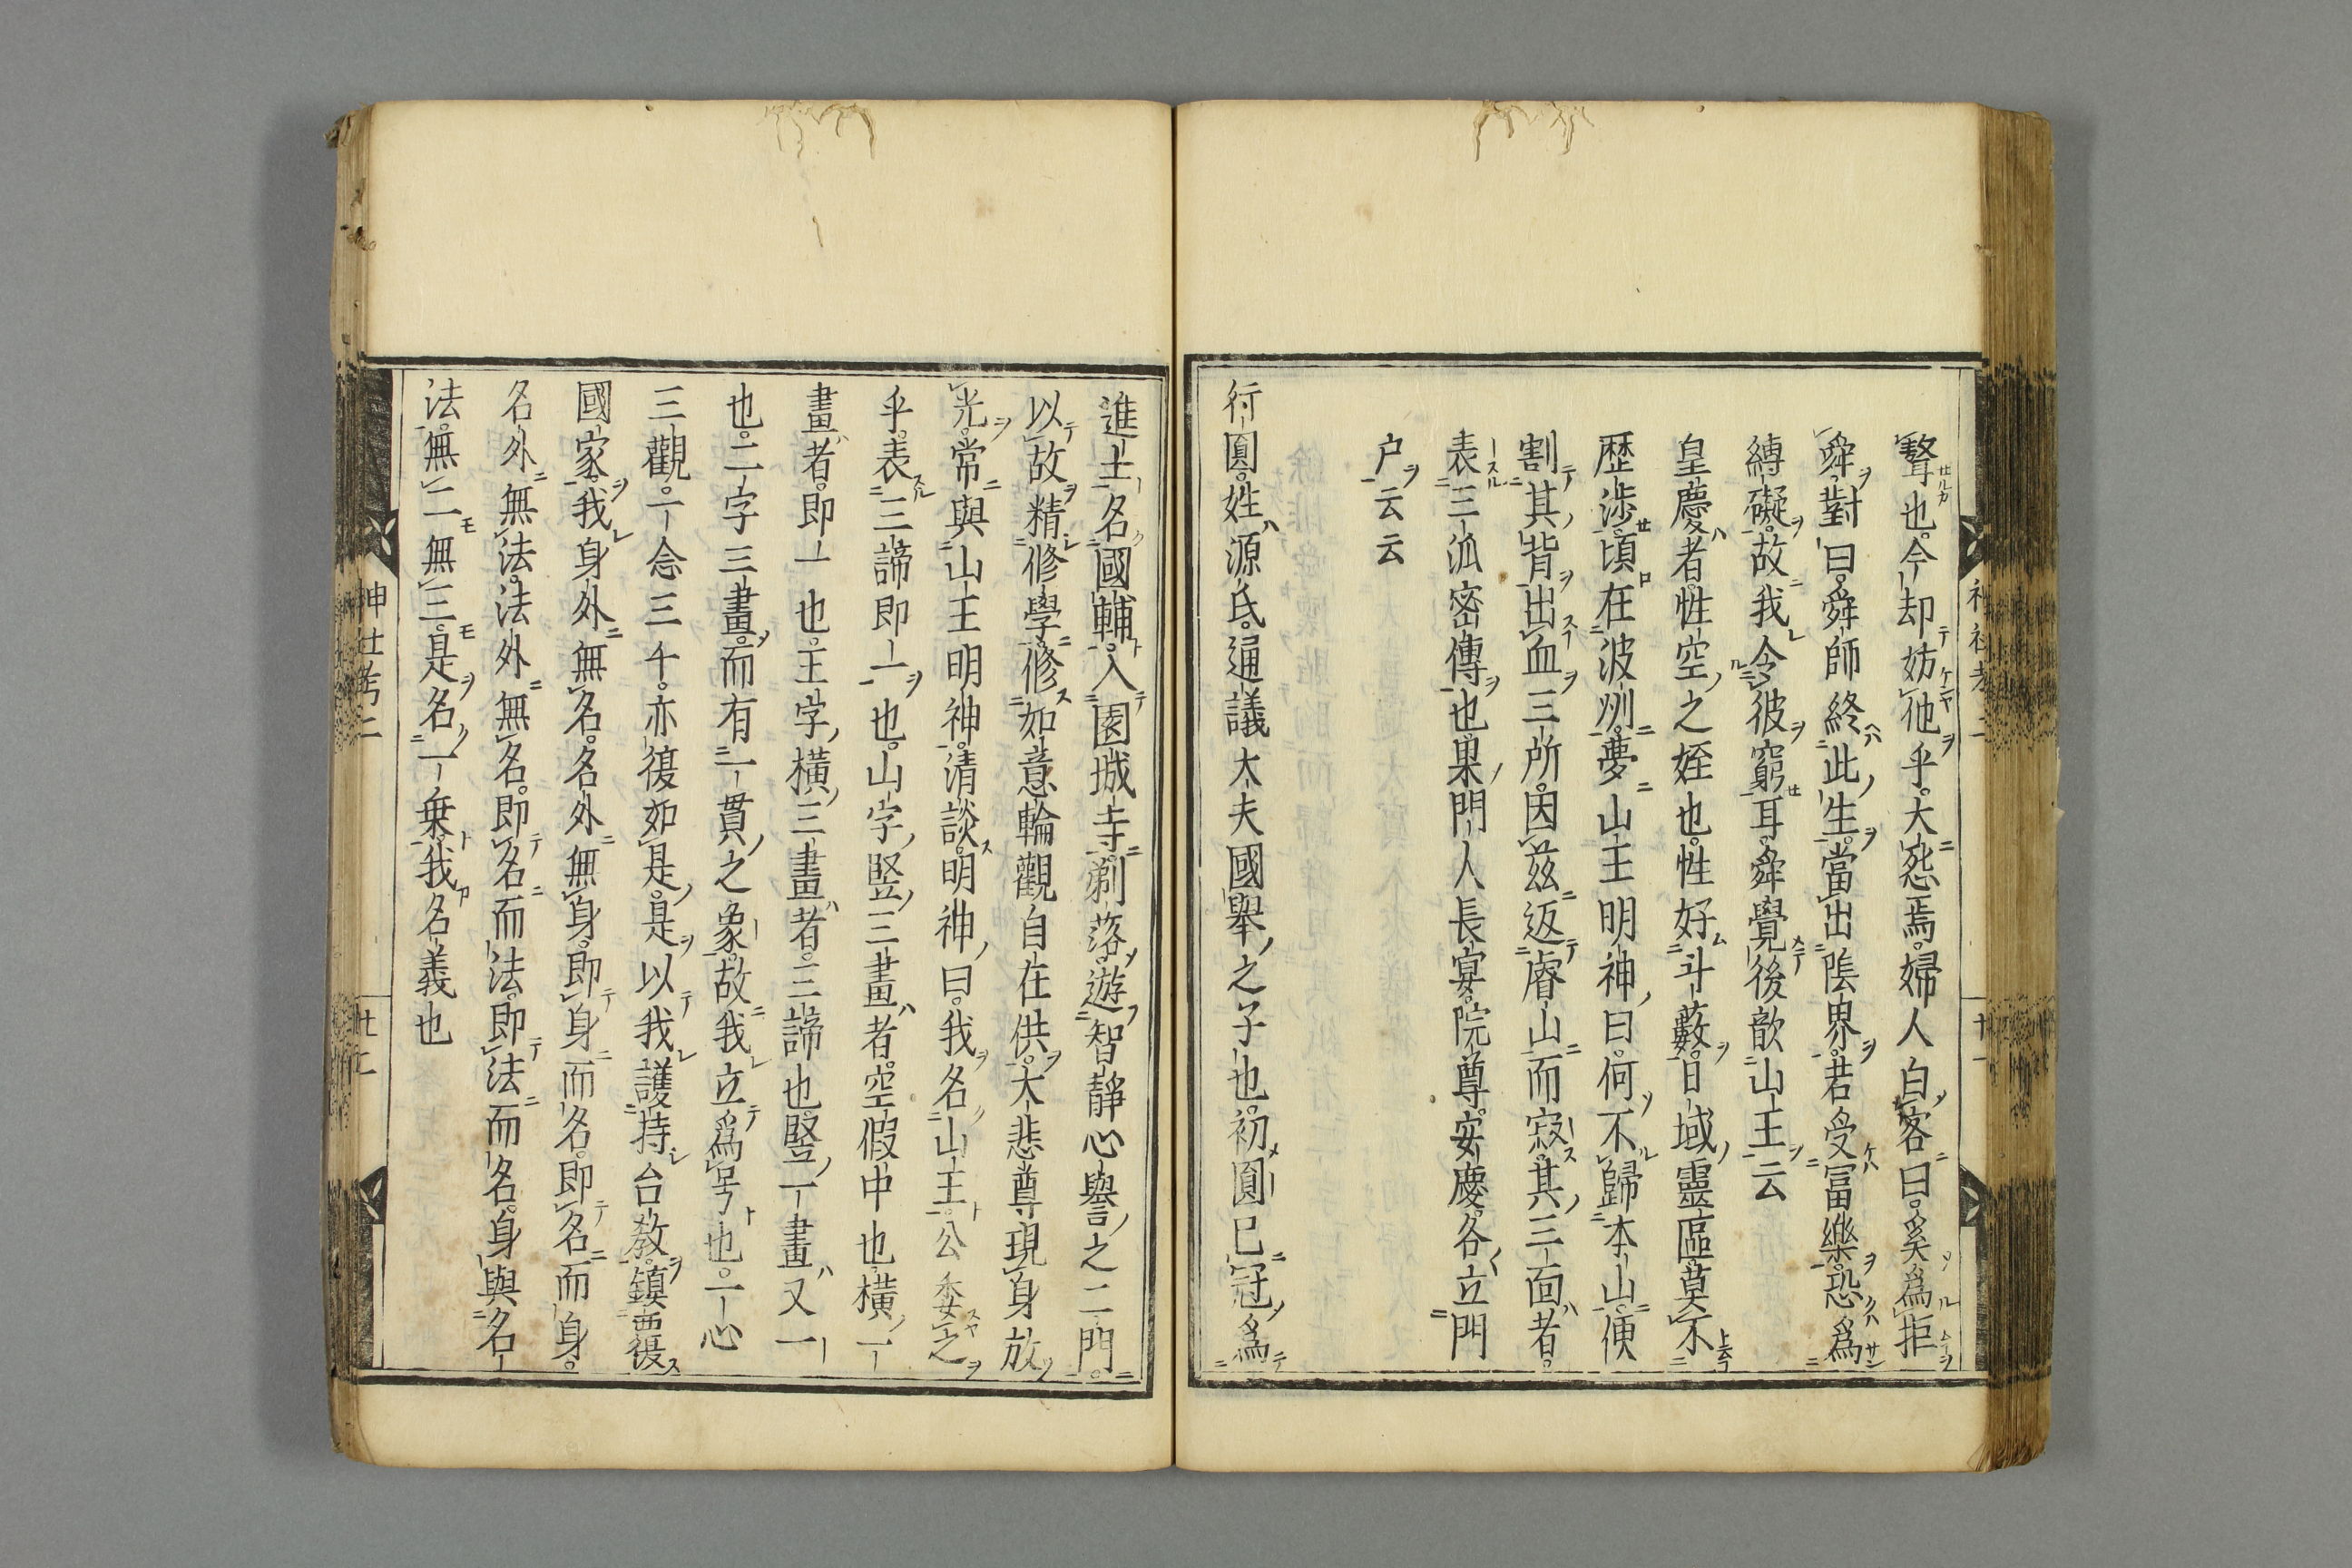 聱也。今却妨他乎。大怨焉。婦人白客曰。奚爲拒
舜對曰。舜師終此生。當出陰界。若受冨樂。恐爲
縛礙。故我令彼窮耳。舜覺後歆山王云
皇慶者。性空之姪也。性好斗藪。日域靈區。莫不
歷渉。頃在波州。夢山王明神曰。何不歸本山。便
割其背出血三所。因茲返睿山而寂。其三面者。
表三流密傳也。果門人長宴。院尊。安慶。各立門
户云云
行圓。姓源氏。通議大夫國擧之子也。初圓已冠爲
進士名國輔。入園城寺。剃落。遊智靜心譽之二門。
以故精修學。修如意輪觀自在供。大悲尊現身放
光。常與山王明神清談。明神曰。我名山王。公委之
乎。表三諦即一也。山字竪三畫者。空假中也。横一
畫者。即一也。王字横三畫者。三諦也。竪一畫又一
也。二字三畫。而有一貫之象。故我立爲号也。一心
三觀。一念三千。亦復如是。是以我護持台教。鎮西復
國家。我身外無名。名外無身。即身而名。即名而身。
名外無法。法外無名。即名而法。即法而名。身與名
法。無二無三。是名一乗。我名義也
神社考二
十一
神社考二
廿二